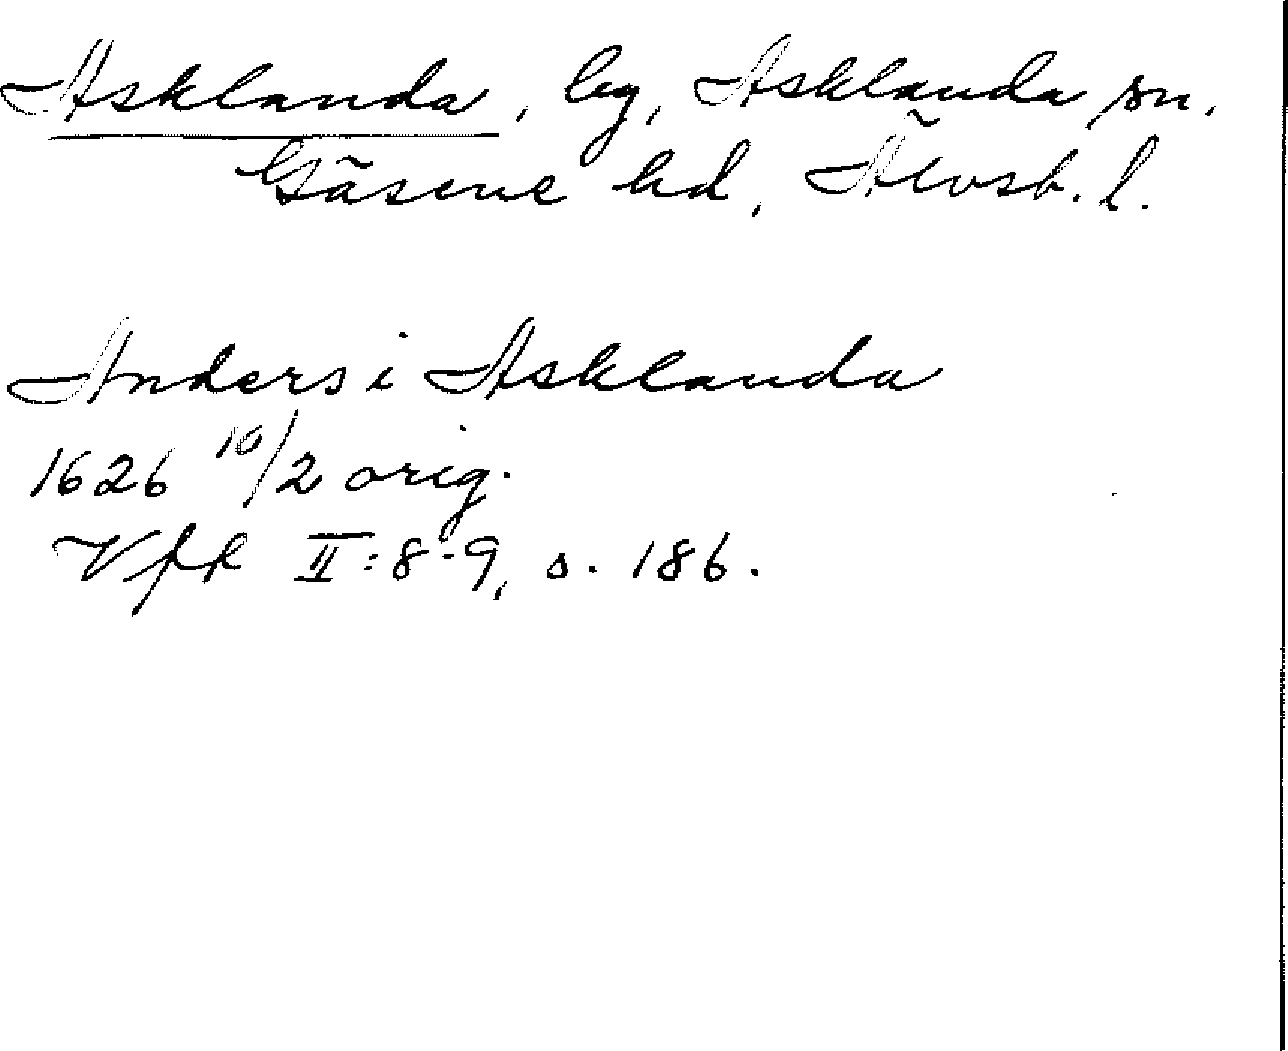 Asklanda, by, Asklanda sn,
Gäsene hd, Älvsb. l.
Anders i Asklanda
1626 10/2 orig.
Vfk II:8-9, s. 186.